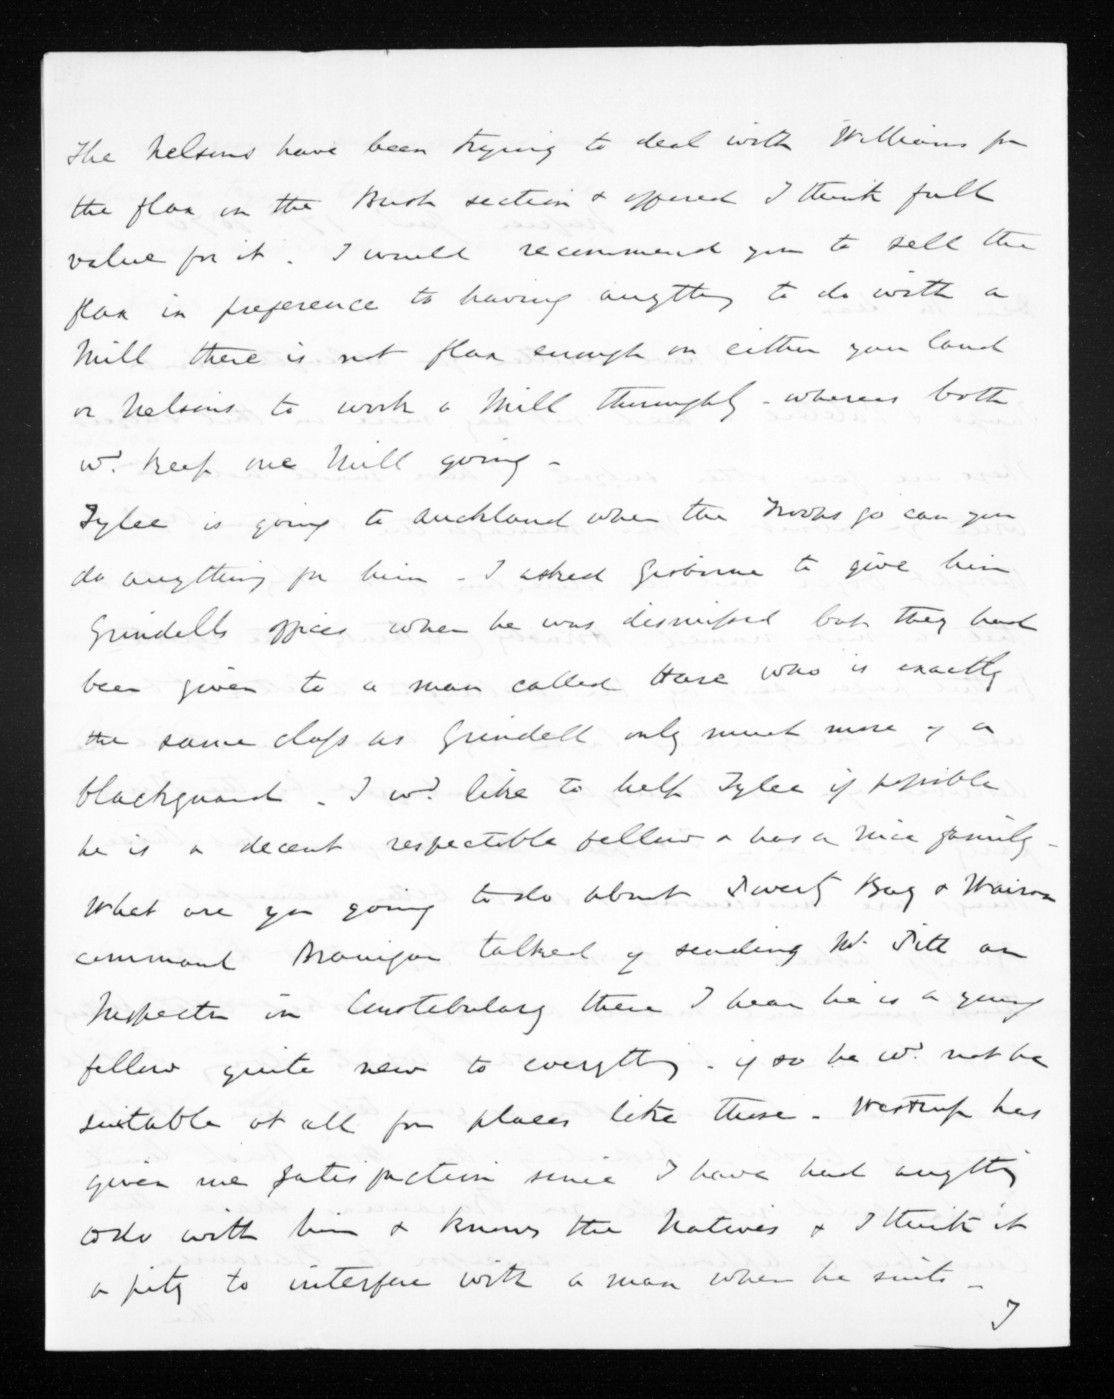 The Nelsons have been trying to deal with Williams for
the flax in the Bush section & offered I think full
value for it. I would recommend you to sell the
flax in preference to having anything to do with a
Mill there is not flax enough on either your land
or Nelsons to work a Mill thoroughly - whereas both
wd. keep one Mill going -
Tylee is going to Auckland when the Troops go can you
do anything for him - I asked Gisborne to give him
Grindells offices when he was dismissed but they had
been given to a man called Hare who is exactly
the same class as Grindell only much more of a
blackguard - I wd. like to help Tylee if possible
he is a decent respectable fellow & has a nice family -
What are you going to do about Poverty Bay & Wairoa
command Branigan talked of sending Mr. Pitt an
Inspector in Constabulary there I hear he is a young
fellow quite new to everything - if so he wd. not be
suitable at all for places like these - Westrup has
given me satisfaction since I have had anything
to do with him & knows the Natives & I think it
a pity to interfere with a man when he suits -
I